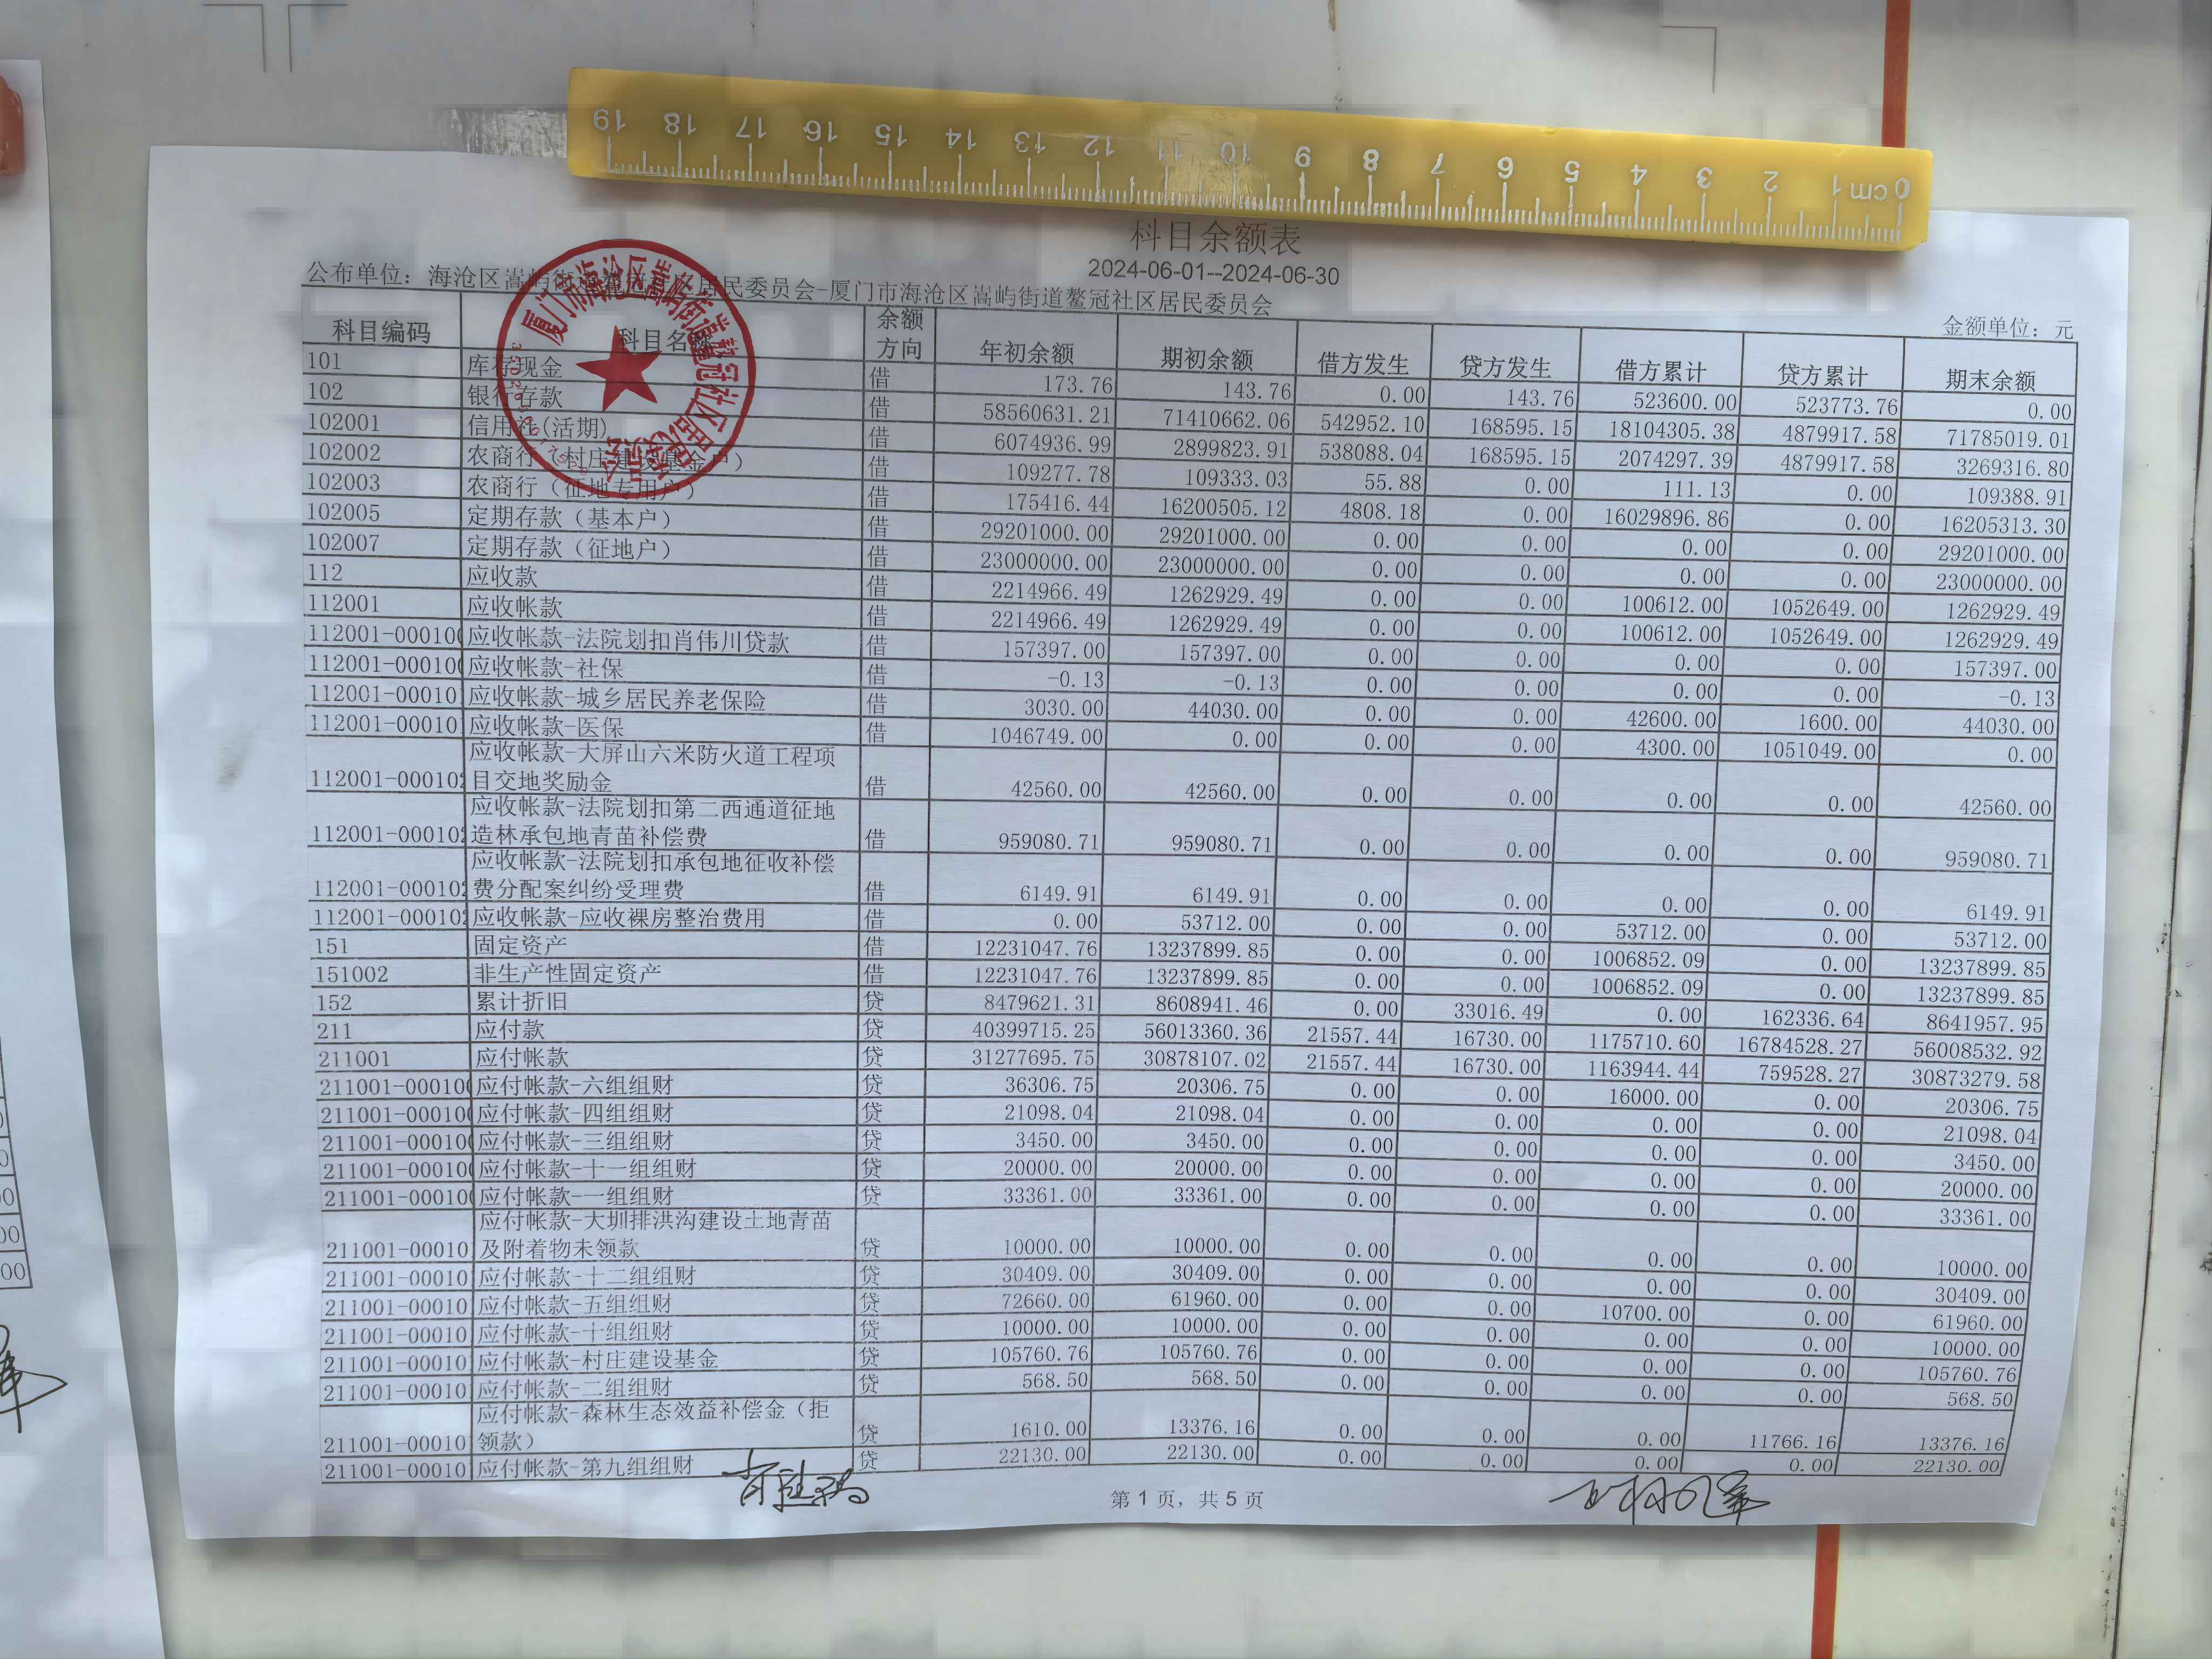 19 18 17 16 15 14 13 12 11 10 9 8 7 6 5 4 3 2 1 cm 0
科目余额表
2024-06-01--2024-06-30
公布单位：海沧区嵩屿街道鳌冠社区居民委员会-厦门市海沧区嵩屿街道鳌冠社区居民委员会
金额单位：元
厦门市海沧区嵩屿街道鳌冠社区居民委员会
科目编码 科目名称 余额方向 年初余额 期初余额 借方发生 贷方发生 借方累计 贷方累计 期末余额
101 库存现金 借 173.76 143.76 0.00 143.76 523600.00 523773.76 0.00
102 银行存款 借 58560631.21 71410662.06 542952.10 168595.15 18104305.38 4879917.58 71785019.01
102001 信用社(活期) 借 6074936.99 2899823.91 538088.04 168595.15 2074297.39 4879917.58 3269316.80
102002 农商行（村庄建设基金户） 借 109277.78 109333.03 55.88 0.00 111.13 0.00 109388.91
102003 农商行（征地专用户） 借 175416.44 16200505.12 4808.18 0.00 16029896.86 0.00 16205313.30
102005 定期存款（基本户） 借 29201000.00 29201000.00 0.00 0.00 0.00 0.00 29201000.00
102007 定期存款（征地户） 借 23000000.00 23000000.00 0.00 0.00 0.00 0.00 23000000.00
112 应收款 借 2214966.49 1262929.49 0.00 0.00 100612.00 1052649.00 1262929.49
112001 应收帐款 借 2214966.49 1262929.49 0.00 0.00 100612.00 1052649.00 1262929.49
112001-00010 应收帐款-法院划扣肖伟川贷款 借 157397.00 157397.00 0.00 0.00 0.00 0.00 157397.00
112001-00010 应收帐款-社保 借 -0.13 -0.13 0.00 0.00 0.00 0.00 -0.13
112001-00010 应收帐款-城乡居民养老保险 借 3030.00 44030.00 0.00 0.00 42600.00 1600.00 44030.00
112001-00010 应收帐款-医保 借 1046749.00 0.00 0.00 0.00 4300.00 1051049.00 0.00
应收帐款-大屏山六米防火道工程项
112001-00010 目交地奖励金 借 42560.00 42560.00 0.00 0.00 0.00 0.00 42560.00
应收帐款-法院划扣第二西通道征地
112001-00010 造林承包地青苗补偿费 借 959080.71 959080.71 0.00 0.00 0.00 0.00 959080.71
应收帐款-法院划扣承包地征收补偿
112001-00010 费分配案纠纷受理费 借 6149.91 6149.91 0.00 0.00 0.00 0.00 6149.91
112001-00010 应收帐款-应收裸房整治费用 借 0.00 53712.00 0.00 0.00 53712.00 0.00 53712.00
151 固定资产 借 12231047.76 13237899.85 0.00 0.00 1006852.09 0.00 13237899.85
151002 非生产性固定资产 借 12231047.76 13237899.85 0.00 0.00 1006852.09 0.00 13237899.85
152 累计折旧 贷 8479621.31 8608941.46 0.00 33016.49 0.00 162336.64 8641957.95
211 应付款 贷 40399715.25 56013360.36 21557.44 16730.00 1175710.60 16784528.27 56008532.92
211001 应付帐款 贷 31277695.75 30878107.02 21557.44 16730.00 1163944.44 759528.27 30873279.58
211001-00010 应付帐款-六组组财 贷 36306.75 20306.75 0.00 0.00 16000.00 0.00 20306.75
211001-00010 应付帐款-四组组财 贷 21098.04 21098.04 0.00 0.00 0.00 0.00 21098.04
211001-00010 应付帐款-三组组财 贷 3450.00 3450.00 0.00 0.00 0.00 0.00 3450.00
211001-00010 应付帐款-十一组组财 贷 20000.00 20000.00 0.00 0.00 0.00 0.00 20000.00
211001-00010 应付帐款-一组组财 贷 33361.00 33361.00 0.00 0.00 0.00 0.00 33361.00
应付帐款-大圳排洪沟建设土地青苗
211001-00010 及附着物未领款 贷 10000.00 10000.00 0.00 0.00 0.00 0.00 10000.00
211001-00010 应付帐款-十二组组财 贷 30409.00 30409.00 0.00 0.00 0.00 0.00 30409.00
211001-00010 应付帐款-五组组财 贷 72660.00 61960.00 0.00 0.00 10700.00 0.00 61960.00
211001-00010 应付帐款-十组组财 贷 10000.00 10000.00 0.00 0.00 0.00 0.00 10000.00
211001-00010 应付帐款-村庄建设基金 贷 105760.76 105760.76 0.00 0.00 0.00 0.00 105760.76
211001-00010 应付帐款-二组组财 贷 568.50 568.50 0.00 0.00 0.00 0.00 568.50
应付帐款-森林生态效益补偿金（拒
211001-00010 领款） 贷 1610.00 13376.16 0.00 0.00 0.00 11766.16 13376.16
211001-00010 应付帐款-第九组组财 贷 22130.00 22130.00 0.00 0.00 0.00 0.00 22130.00
第 1 页，共 5 页